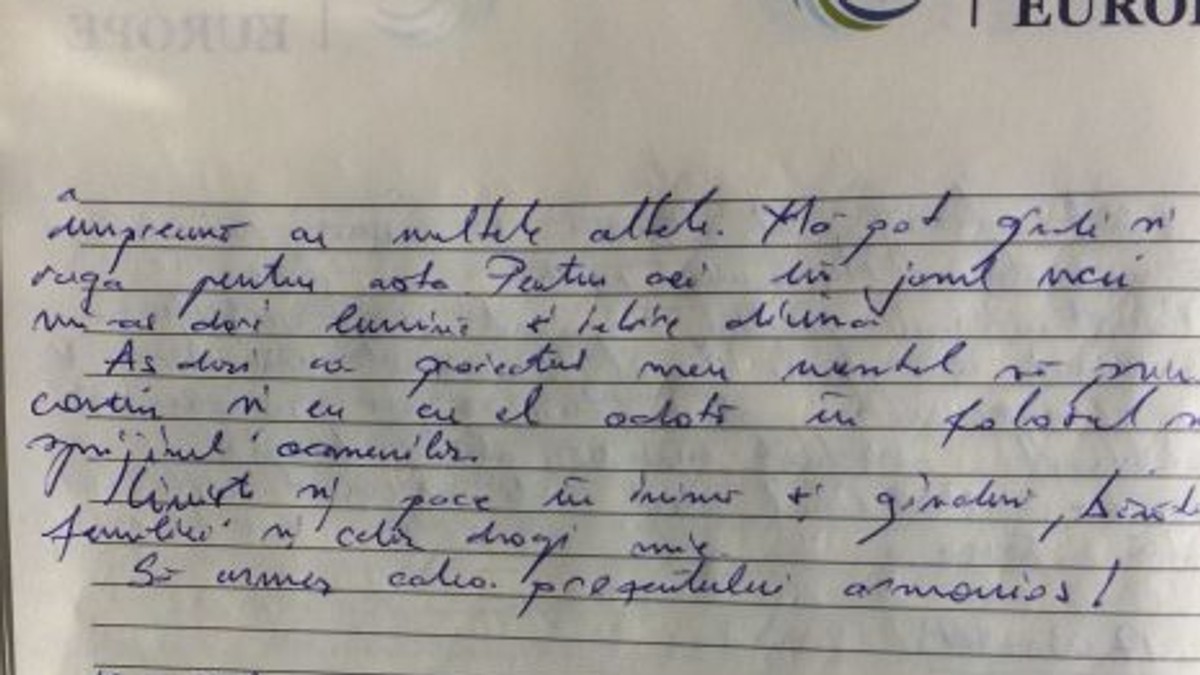 EURO
împreună cu multele altele. Mă pot gândi și
ruga pentru asta. Pentru cei din jurul meu
mi-aș dori lumină și iubire divină
Aș dori ca proiectul meu mental să prin
și eu cu el odată în folosul
sprijinul oamenilor.
Liniște și pace în inimă și gînduri,
familiei și celor dragi mie.
Să urmez calea prezentului armonios!